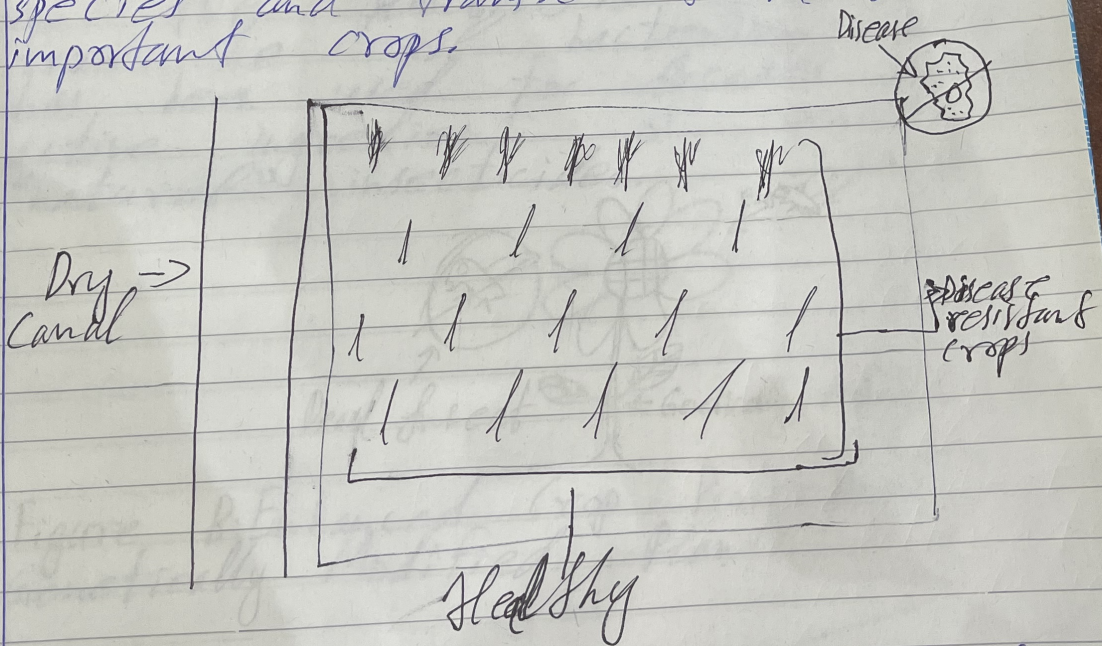 species and
important crops.
Disease
Dry ->
Canal
Disease
resistant
crops
Healthy